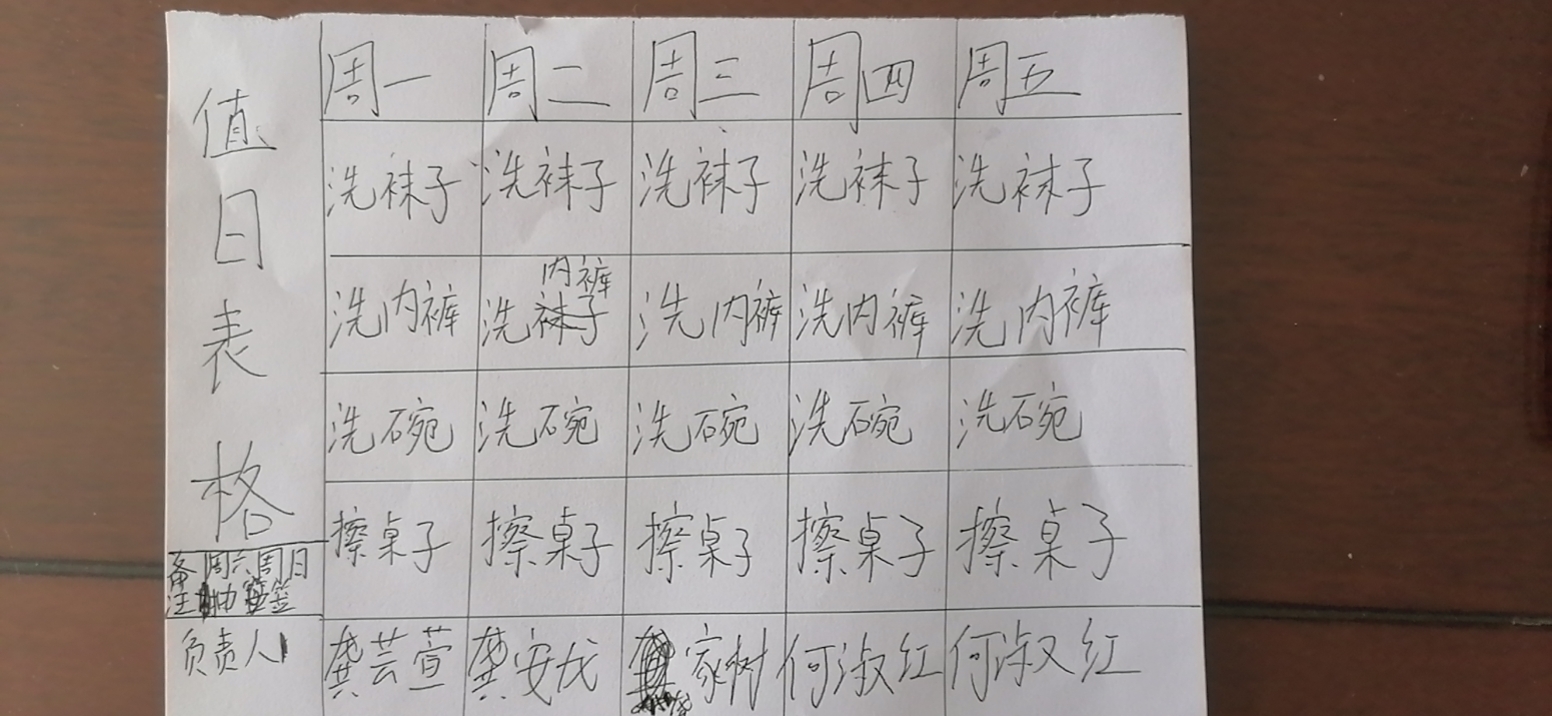 值日表格
周一 周二 周三 周四 周五
洗袜子 洗袜子 洗袜子 洗袜子 洗袜子
洗内裤 洗内裤 洗内裤 洗内裤 洗内裤
洗碗 洗碗 洗碗 洗碗 洗碗
擦桌子 擦桌子 擦桌子 擦桌子 擦桌子
备注 周六周日
抽签
负责人 龚芸萱 龚安龙 家树 何淑红 何淑红